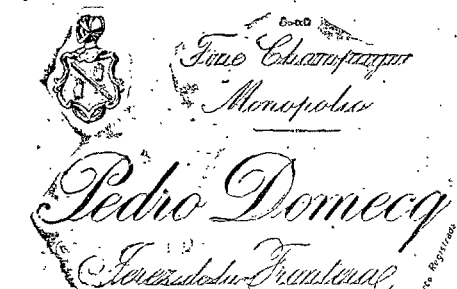 Fine Champagne
Monopolio
Pedro Domecq
Jerez de la Frontera
Registrado